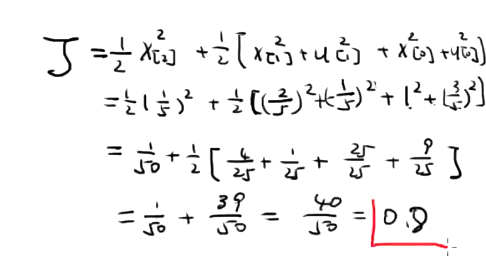 J = 1/2 x²[2] + 1/2 [x²[1] + u²[1] + x²[0] + u²[0]]
= 1/2 (1/5)² + 1/2 [(2/5)² + (-1/5)² + 1² + (3/5)²]
= 1/50 + 1/2 [4/25 + 1/25 + 25/25 + 9/25]
= 1/50 + 39/50 = 40/50 = 0.8